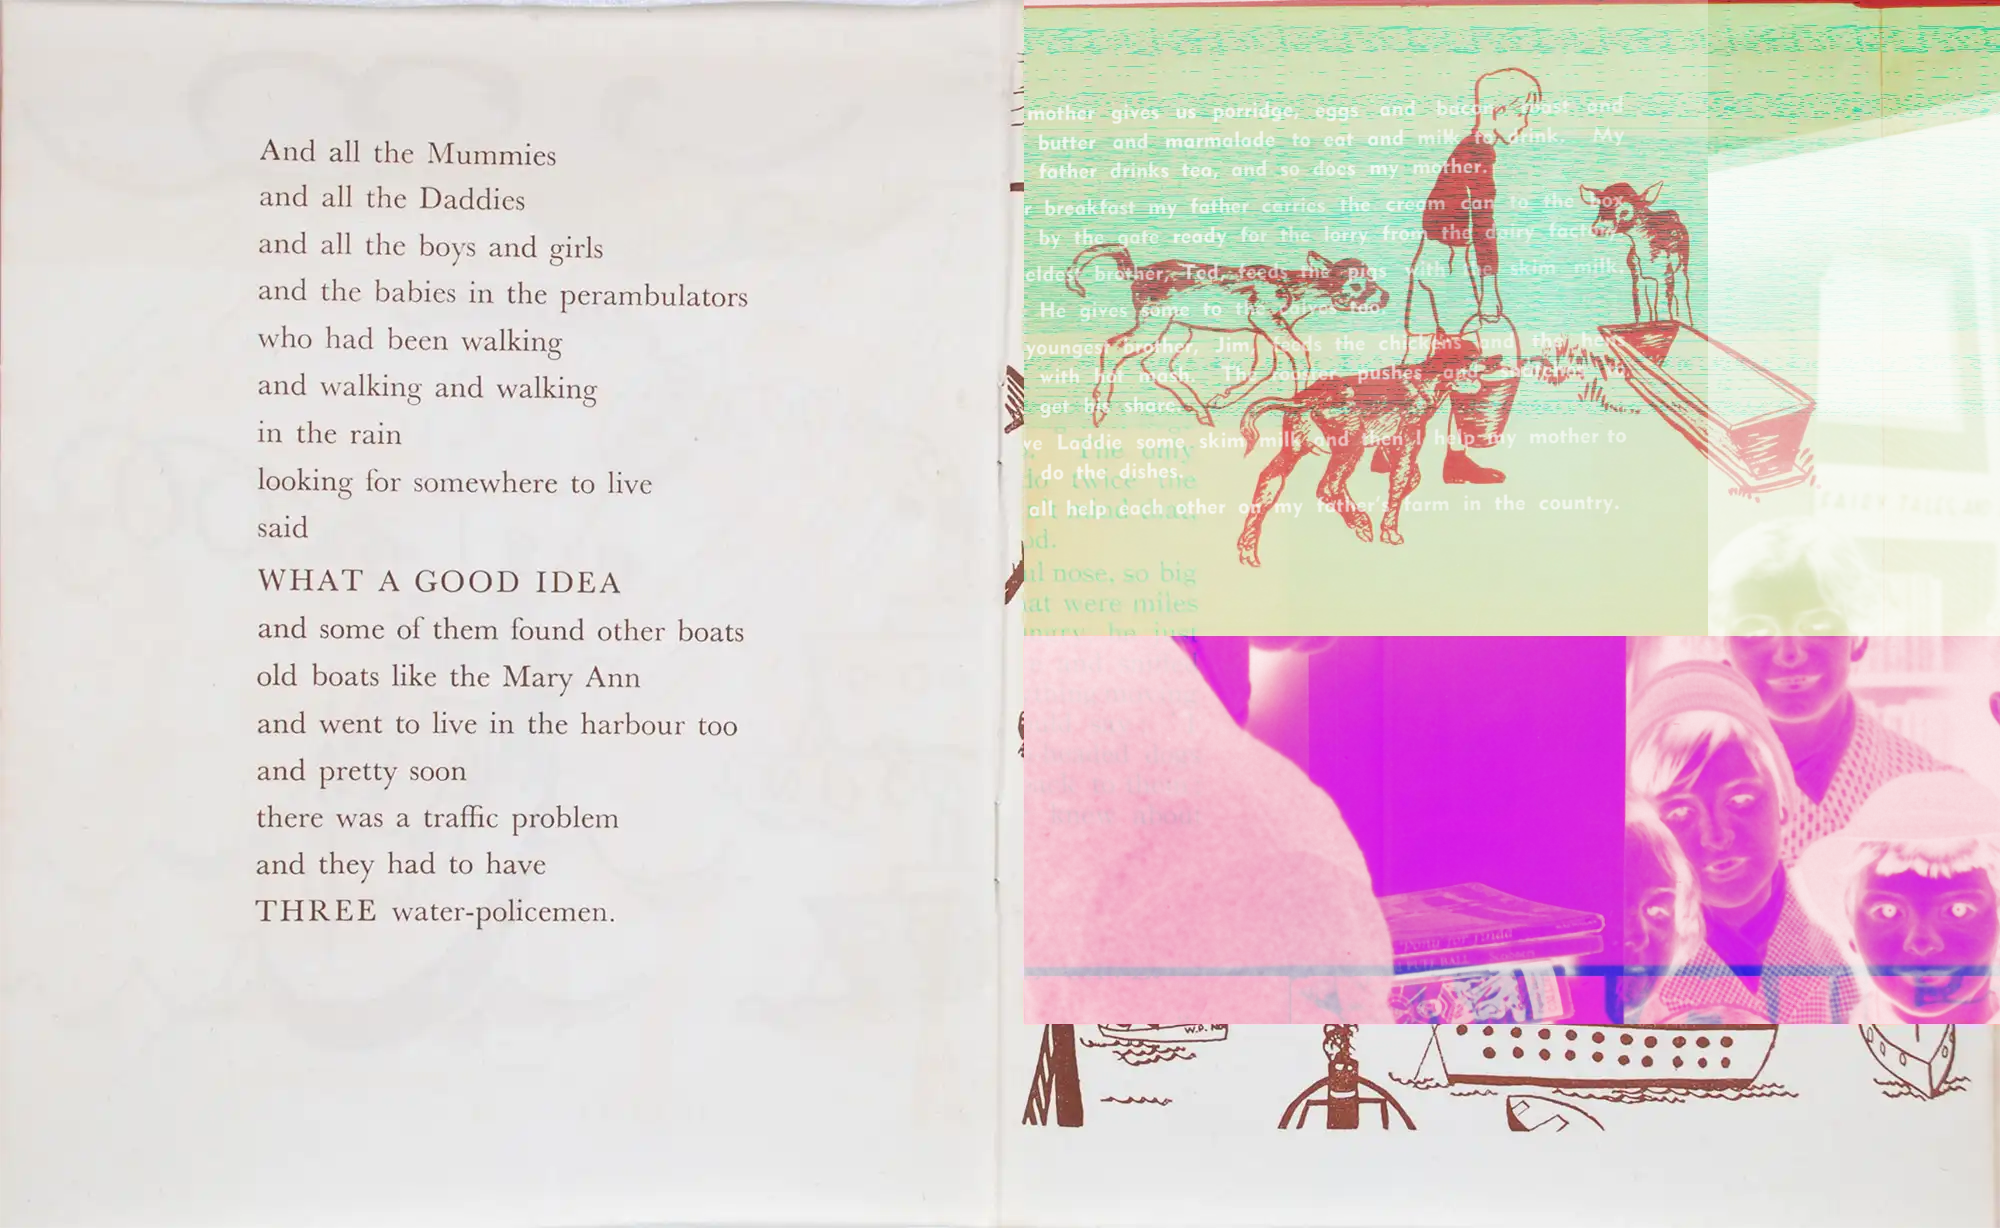 And all the Mummies
and all the Daddies
and all the boys and girls
and the babies in the perambulators
who had been walking
and walking and walking
in the rain
looking for somewhere to live
said
WHAT A GOOD IDEA
and some of them found other boats
old boats like the Mary Ann
and went to live in the harbour too
and pretty soon
there was a traffic problem
and they had to have
THREE water-policemen.
mother gives us porridge, eggs and bacon, toast and
butter and marmalade to eat and milk to drink. My
father drinks tea, and so does my mother.
breakfast my father carries the cream can to the box
by the gate ready for the lorry from the dairy factory.
eldest brother, Ted, feeds the pigs with the skim milk.
He gives some to the calves too.
youngest brother, Jim, feeds the chickens and the hens
with hot mash. The rooster pushes and snatches to
get his share.
Laddie some skim milk and then I help my mother to
do the dishes.
all help each other on my father's farm in the country.
The only
twice the
nose, so big
at were miles
he just
Pony for Linda
PUFF BALL
W.P. No